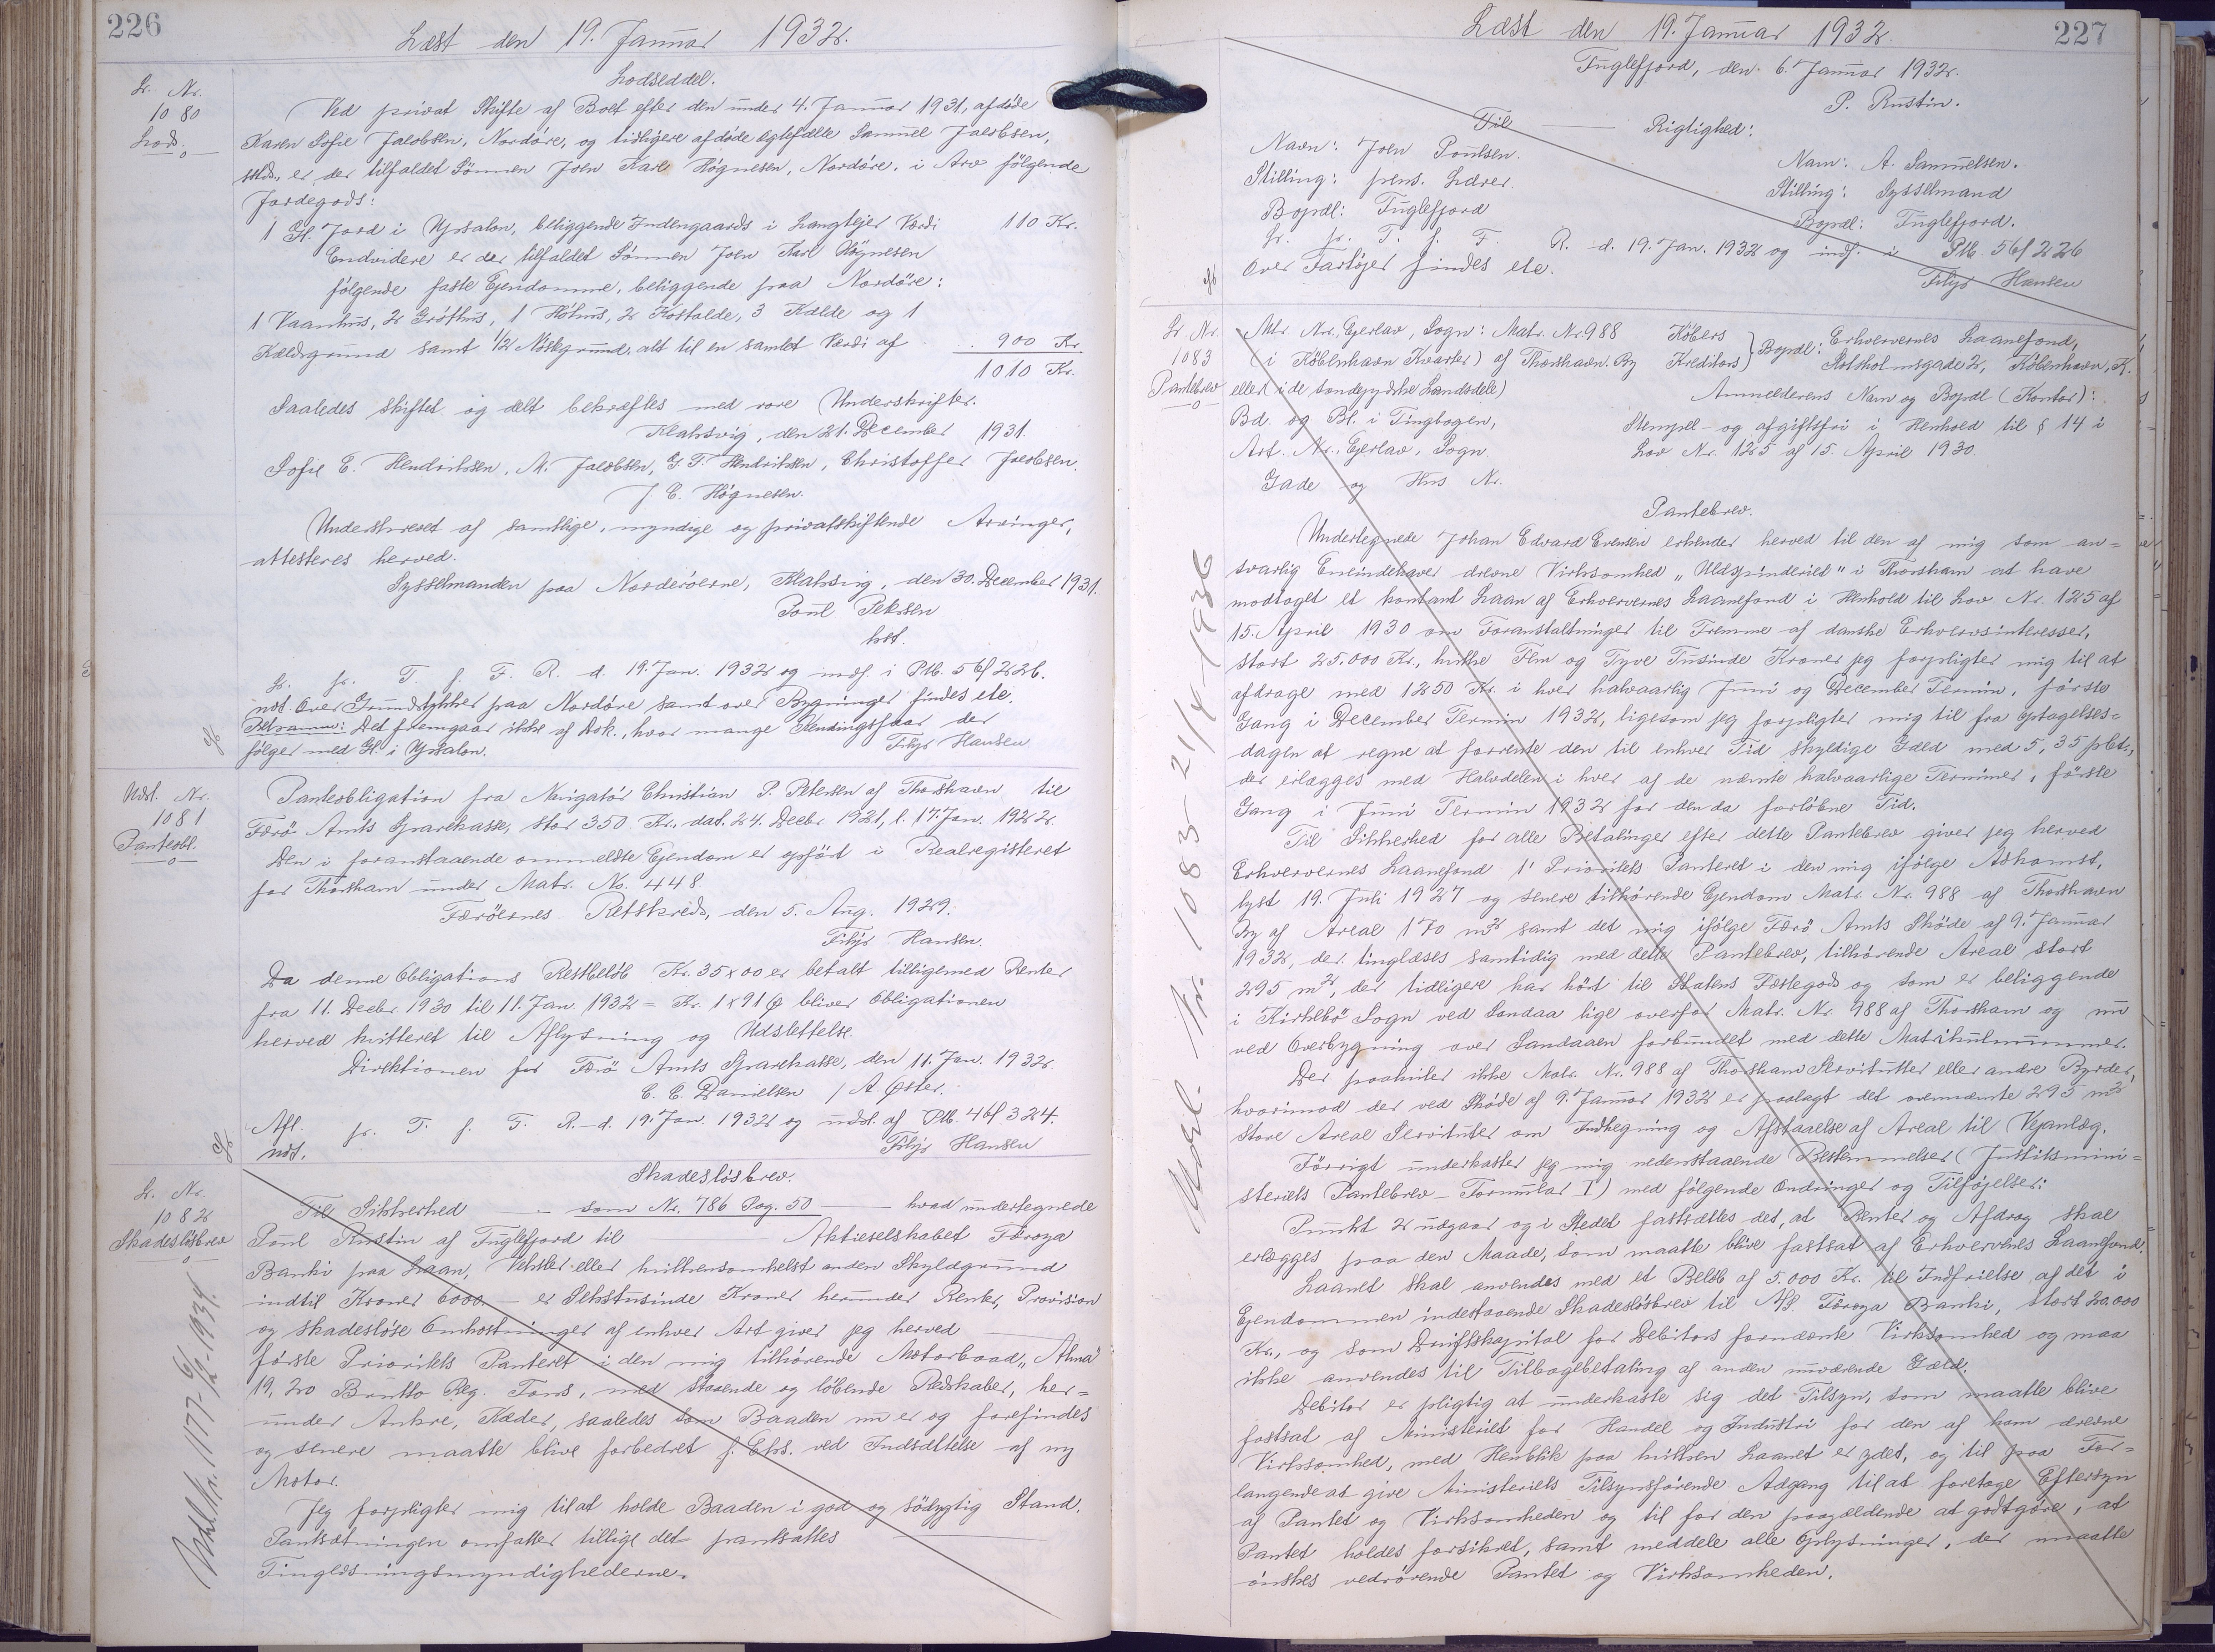 226
Læst den 19. Januar 1932.
Lodseddel.
Lr. Nr.
1080
Lods.
Ved privat Skifte af Boet efter den under 4. Januar 1931, afdøde
Karen Sofie Jacobsen, Nordøre, og tidligere afdøde Egtefælle Samuel Jacobsen,
er der tilfaldet Sønnen Joen Karl Høgnesen, Nordøre, i Arv følgende
Jordegods:
1 Gl. Jord i Ypsalon, beliggende Indengaards i Langtejer Værdi 110 Kr.
Endvidere er der tilfaldet Sønnen Joen Karl Høgnesen
følgende faste Ejendomme, beliggende paa Nordøre:
1 Vaanhus, 2 Grøthus, 1 Høhus, 2 Kostalde, 3 Kælde og 1
Kældsgrund samt 1/2 Nøstgrund, alt til en samlet Værdi af . 900 Kr.
1010 Kr.
Saaledes skiftet og delt bekræftes med vore Underskrifter.
Klaksvig, den 21. December 1931.
Sofie E. Hendriksen, M. Jacobsen, G. F. Hendriksen, Christoffer Jacobsen.
J. C. Høgnesen.
Underskrevet af samtlige, myndige og privatskiftende Arvinger,
attesteres herved.
Sysselmanden paa Norderøerne, Klaksvig, den 30. December 1931.
Poul Petersen
kst.
Lr. fr. T. f. F. R. d. 19. Jan. 1932 og indf. i Ptb. 5 bf 226.
udt. Over Grundstykker paa Nordøre samt over Bygninger findes etc.
Retsanm: Det fremgaar ikke af Dok., hvor mange Kendingsfaar der
følger med Gl. i Ypsalon. Filip Hansen
Udsl. Nr.
1081
Panteobl.
Panteobligation fra Navigatør Christian P. Petersen af Thorshavn til
Færø Amts Sparekasse, stor 350 Kr., dat. 24. Decbr. 1921, l. 17. Jan. 1922.
Den i foranstaaende ommeldte Ejendom er opført i Realregisteret
for Thorshavn under Matr. No. 448.
Færøernes Retskreds, den 5. Aug. 1929.
Filip Hansen.
Da denne Obligations Restbeløb Kr. 35 x 00 er betalt tilligemed Renter
fra 11. Decbr. 1930 til 11. Jan. 1932 = Kr. 1 x 91 Ø bliver Obligationen
herved kvitteret til Aflysning og Udslettelse.
Direktionen for Færø Amts Sparekasse, den 11. Jan. 1932.
C. C. Danielsen / A. Øster.
Afl. fr. T. f. F. R. d. 19. Jan 1932 og udsl. af Ptb. 4 bf 324.
udt. Filip Hansen
Skadesløsbrev.
Lr. Nr.
1082
Skadesløsbrev
Til Sikkerhed som Nr. 786 Pag. 50 hvad undertegnede
Poul Rustin af Fuglefjord til Aktieselskabet Føroya
Banki paa Laan, Veksler eller hvilkensomhelst anden Skyldgrund
indtil Kroner 6000 - er Sekstusinde Kroner herunder Renter, Provision
og skadesløse Omkostninger af enhver Art giver jeg herved
første Prioritets Panteret i den mig tilhørende Motorbaad „Alma"
19,20 Brutto Reg. Tons, med staaende og løbende Redskaber, her=
under Ankre, Kæder, saaledes som Baaden nu er og forefindes
og senere maatte blive forbedret f. Eks. ved Indsættelse af ny
Motor.
Jeg forpligter mig til at holde Baaden i god og sødygtig Stand.
Pantsætningen omfatter tillige det pantsattes
Tinglæsningsmyndighederne.
227
Læst den 19. Januar 1932.
Fuglefjord, den 6. Januar 1932.
P. Rustin.
Til Rigtighed:
Navn: Joen Poulsen. Navn: A. Samuelsen.
Stilling: pens. Lærer. Stilling: Sysselmand
Bopæl: Fuglefjord Bopæl: Fuglefjord.
Lr. fr. T. f. F. R. d. 19. Jan. 1932 og indf. i Ptb. 5 bf 226
Over Fartøjer findes etc. Filip Hansen
Lr. Nr.
1083
Pantebrev
Mtr. Nr., Ejerlav, Sogn: Matr. Nr 988 Købers Bopæl: Erhvervenes Laanefond,
(i København Kvarter) af Thorshavn. By Kreditors Slotsholmsgade 2, København, K.
eller (i de sønderjydske Landsdele) Anmelderens Navn og Bopæl (Kontor):
Bd. og Bl. i Tingbogen, Stempel- og afgiftsfri i Henhold til § 14 i
Art. Nr., Ejerlav, Sogn. Lov Nr. 125 af 15. April 1930.
Gade og Hus Nr.
Pantebrev.
Undertegnede Johan Edvard Evensen erkender herved til den af mig som an=
svarlig Eneindehaver drevne Virksomhed „Uldspinderiet" i Thorshavn at have
modtaget et kontant Laan af Erhvervenes Laanefond i Henhold til Lov Nr. 125 af
15. April 1930 om Foranstaltninger til Fremme af danske Erhvervsinteresser,
stort 25.000 Kr., hvilke Fem og Tyve Tusinde Kroner jeg forpligter mig til at
afdrage med 1250 Kr. i hver halvaarlig Juni og December Termin, første
Gang i December Termin 1932, ligesom jeg forpligter mig til fra Optagelses=
dagen at regne at forrente den til enhver Tid skyldige Gæld med 5,35 pCt.,
der erlægges med Halvdelen i hver af de nævnte halvaarlige Terminer, første
Gang i Juni Termin 1932 for den da forløbne Tid.
Til Sikkerhed for alle Betalinger efter dette Pantebrev giver jeg herved
Erhvervenes Laanefond 1' Prioritets Panteret i den mig ifølge Adkomst,
lyst 19. Juli 1927 og senere tilhørende Ejendom Matr. Nr. 988 af Thorshavn
By af Areal 170 m² samt det mig ifølge Færø Amts Skøde af 9. Januar
1932, der tinglæses samtidig med dette Pantebrev, tilhørende Areal stort
295 m², der tidligere har hørt til Statens Fæstegods og som er beliggende
i Kirkebø Sogn ved Sandaa lige overfor Matr. Nr. 988 af Thorshavn og nu
ved Overbygning over Sandaaen forbundet med dette Matrikulnummer.
Der paahviler ikke Matr. Nr. 988 af Thorshavn Servitutter eller andre Byrder,
hvorimod der ved Skøde af 9. Januar 1932 er paalagt det ovennævnte 295 m²
store Areal Servituter om Indhegning og Afstaaelse af Areal til Vejanlæg.
Førrigt underkaster jeg mig nedenstaaende Bestemmelser (Justitsmini=
steriets Pantebrev - Formular I) med følgende Ændringer og Tilføjelser:
Punkt 2 udgaar og i Stedet fastsættes det, at Renter og Afdrag skal
erlægges paa den Maade, som maatte blive fastsat af Erhvervenes Laanefond.
Laanet skal anvendes med et Beløb af 5.000 Kr. til Indfrielse af det i
Ejendommen indestaaende Skadesløsbrev til A/S. Føroya Banki, stort 20.000
Kr., og som Driftskapital for Debitors fornævnte Virksomhed og maa
ikke anvendes til Tilbagebetaling af anden nuværende Gæld.
Debitor er pligtig at underkaste sig det Tilsyn, som maatte blive
fastsat af Ministeriet for Handel og Industri for den af ham drevne
Virksomhed, med Henblik paa hvilken Laanet er ydet, og til paa For=
langende at give Ministeriets Tilsynsførende Adgang til at foretage Eftersyn
af Pantet og Virksomheden og til for den paagældende at godtgøre, at
Pantet holdes forsikret, samt meddele alle Oplysninger, der maatte
ønskes vedrørende Pantet og Virksomheden.